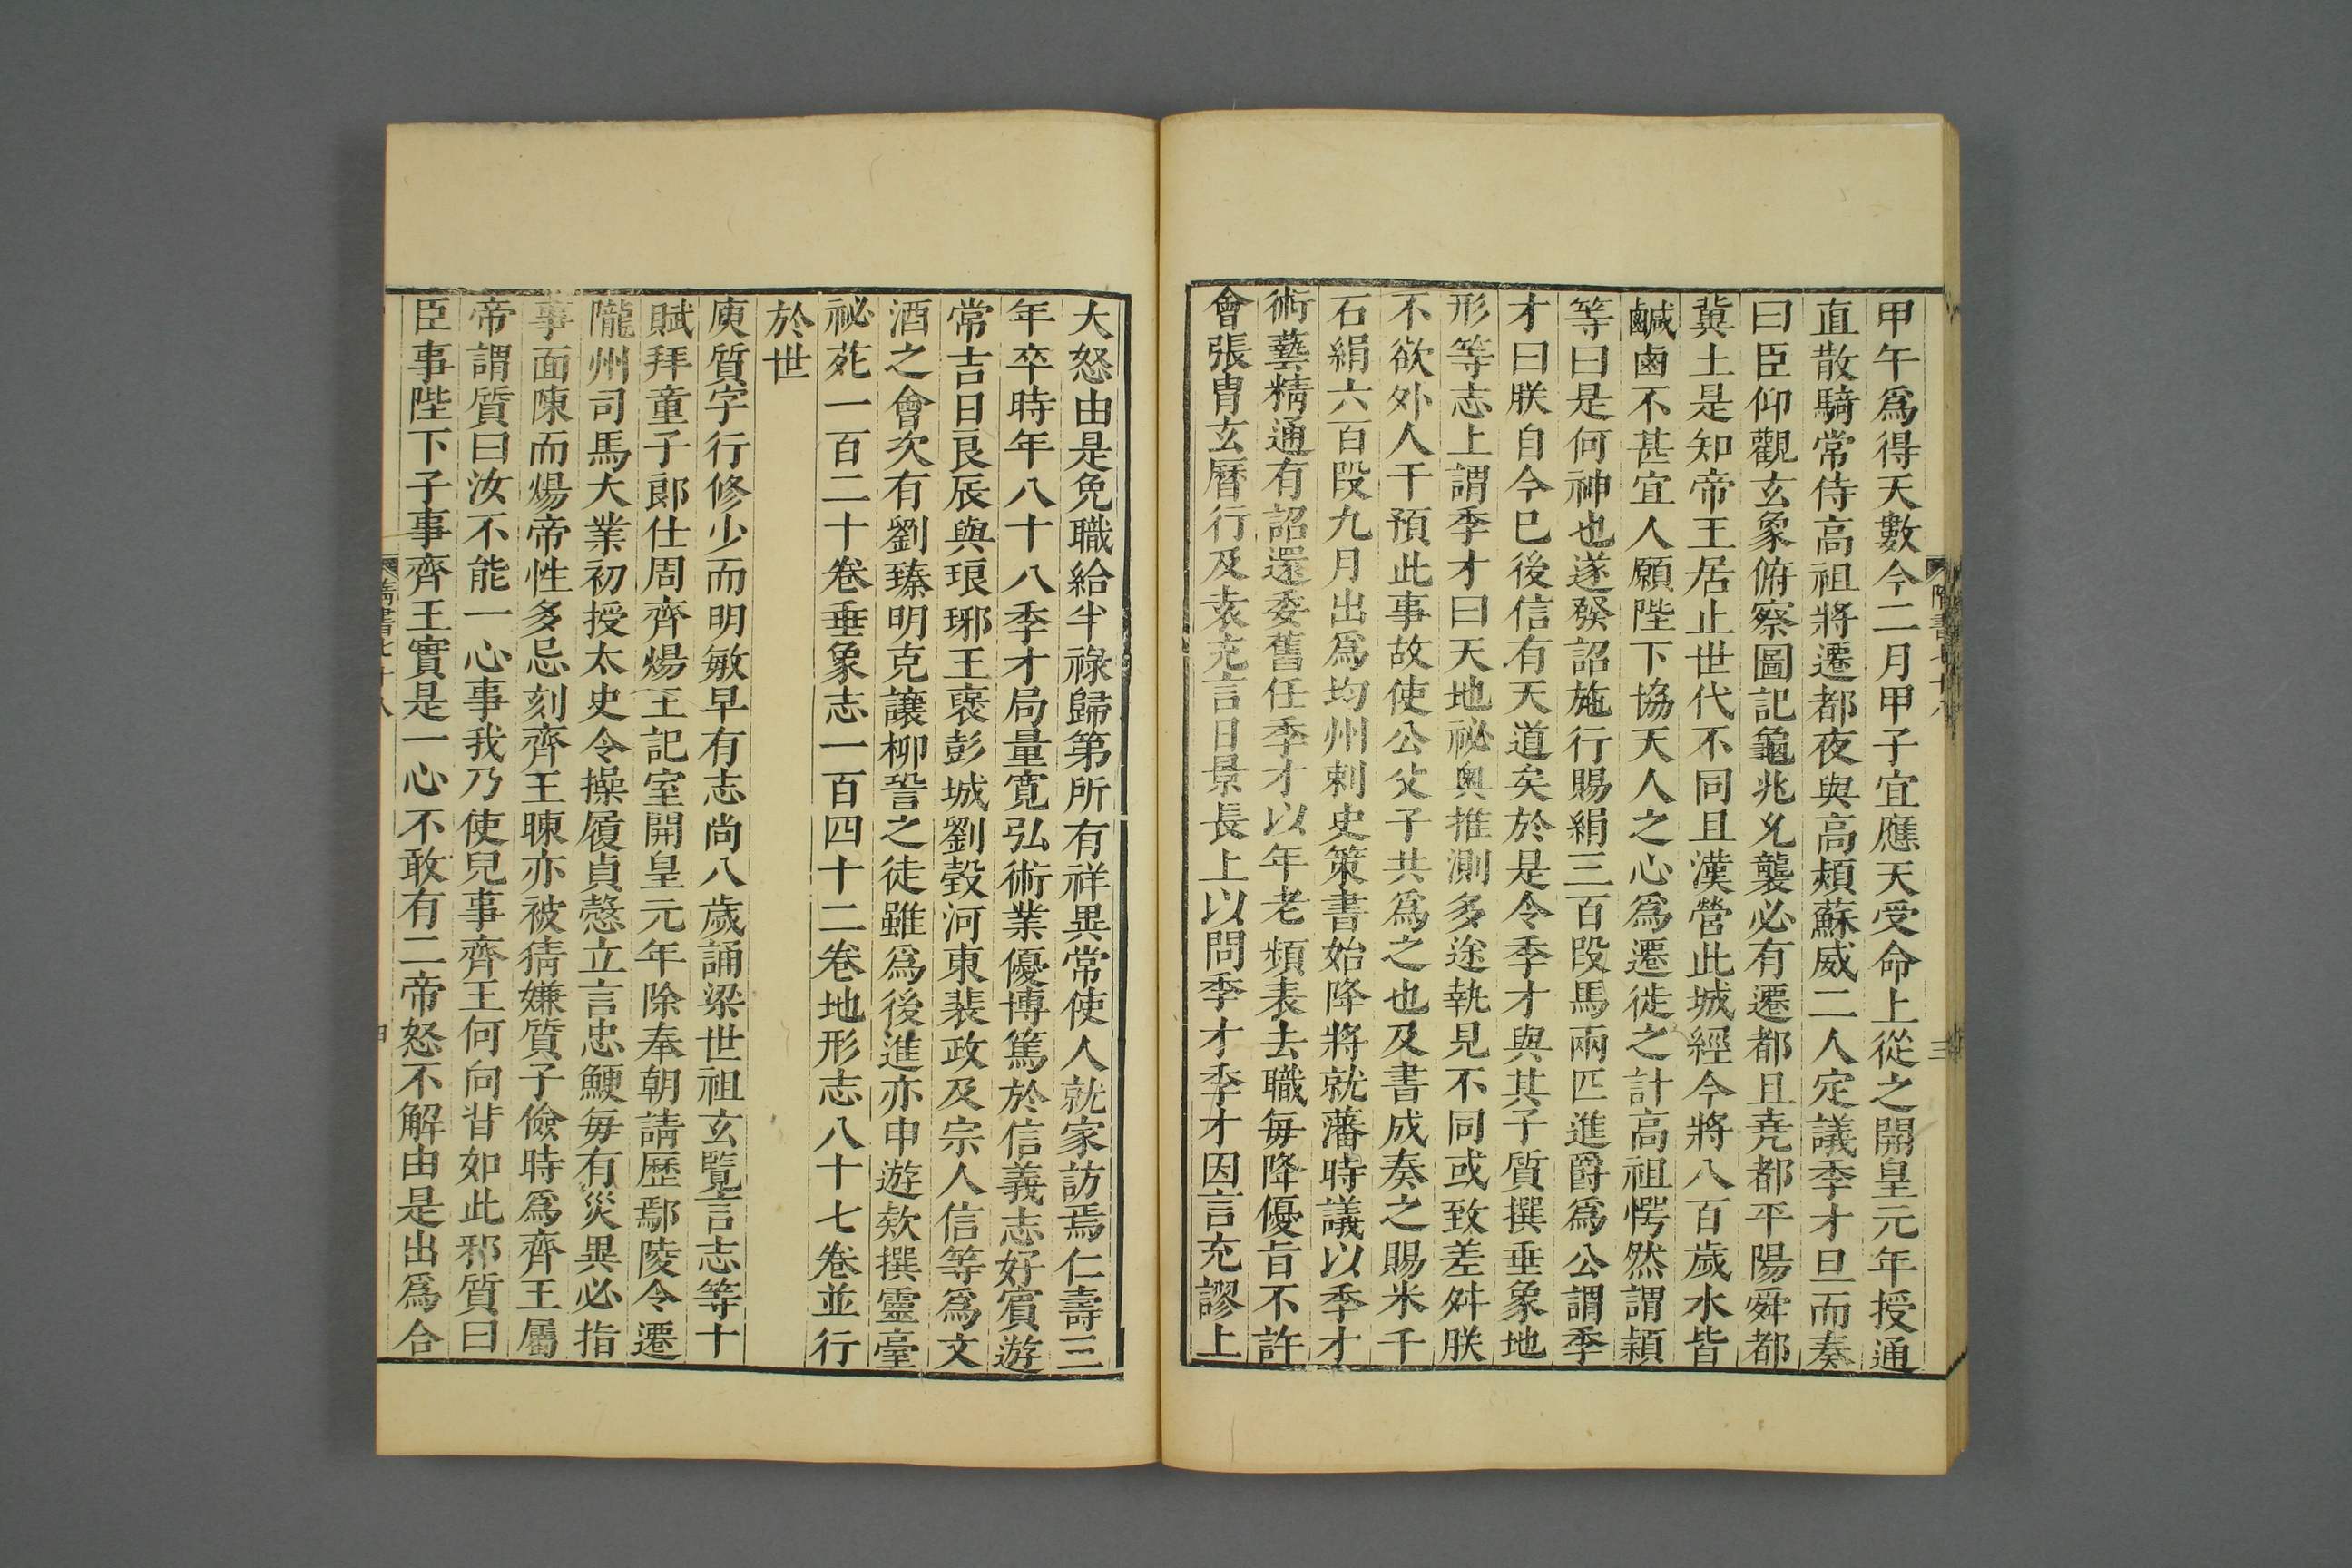 甲午爲得天數今二月甲子宜應天受命上從之開皇元年授通
直散騎常侍高祖將遷都夜與高熲蘇威二人定議季才旦而奏
曰臣仰觀玄象俯察圖記龜兆允襲必有遷都且堯都平陽舜都
冀土是知帝王居止世代不同且漢營此城經今將八百歲水皆
鹹鹵不甚宜人願陛下協天人之心爲遷徙之計高祖愕然謂穎
等曰是何神也遂發詔施行賜絹三百段馬兩匹進爵爲公謂季
才曰朕自今已後信有天道矣於是令季才與其子質撰垂象地
形等志上謂季才曰天地祕奧推測多途執見不同或致差舛朕
不欲外人干預此事故使公父子共爲之也及書成奏之賜米千
石絹六百段九月出爲均州刺史策書始降將就藩時議以季才
術藝精通有詔還委舊任季才以年老頻表去職每降優旨不許
會張胄玄曆行及袁充言日景長上以問季才季才因言充謬上
大怒由是免職給半祿歸第所有祥異常使人就家訪焉仁壽三
年卒時年八十八季才局量寬弘術業優博篤於信義志好賓遊
常吉日良辰與琅琊王褒彭城劉瑴河東裴政及宗人信等爲文
酒之會次有劉臻明克讓柳䛒之徒雖爲後進亦申遊款撰靈臺
祕苑一百二十卷垂象志一百四十二卷地形志八十七卷並行
於世
庾質字行修少而明敏早有志尚八歲誦梁世祖玄覽言志等十
賦拜童子郎仕周齊煬王記室開皇元年除奉朝請歷鄢陵令遷
隴州司馬大業初授太史令操履貞愨立言忠鯁每有災異必指
事面陳而煬帝性多忌刻齊王暕亦被猜嫌質子儉時爲齊王屬
帝謂質曰汝不能一心事我乃使兒事齊王何向背如此邪質曰
臣事陛下子事齊王實是一心不敢有二帝怒不解由是出爲合